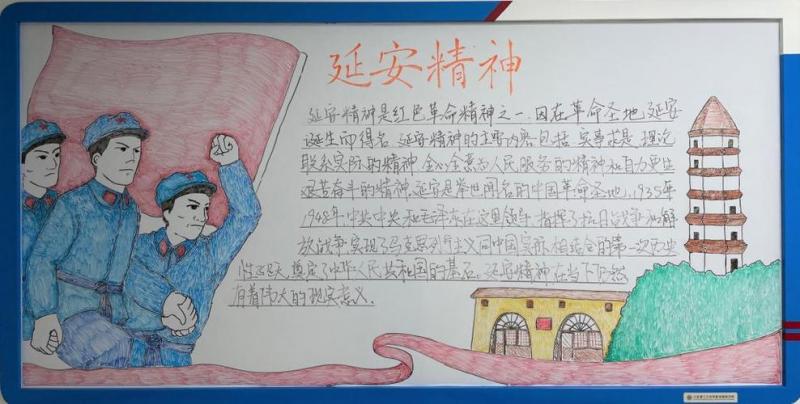 延安精神
延安精神是红色革命精神之一,因在革命圣地延安
诞生而得名,延安精神的主要内容包括实事求是、理论
联系实际的精神,全心全意为人民服务的精神和自力更生
艰苦奋斗的精神,延安是举世闻名的中国革命圣地,1935年
1948年,中共中央和毛泽东在这里领导、指挥了抗日战争和解
放战争,实现了马克思列宁主义同中国实际相结合的第一次历史
性飞跃,奠定了中华人民共和国的基石。延安精神在当下仍然
有着伟大的现实意义.